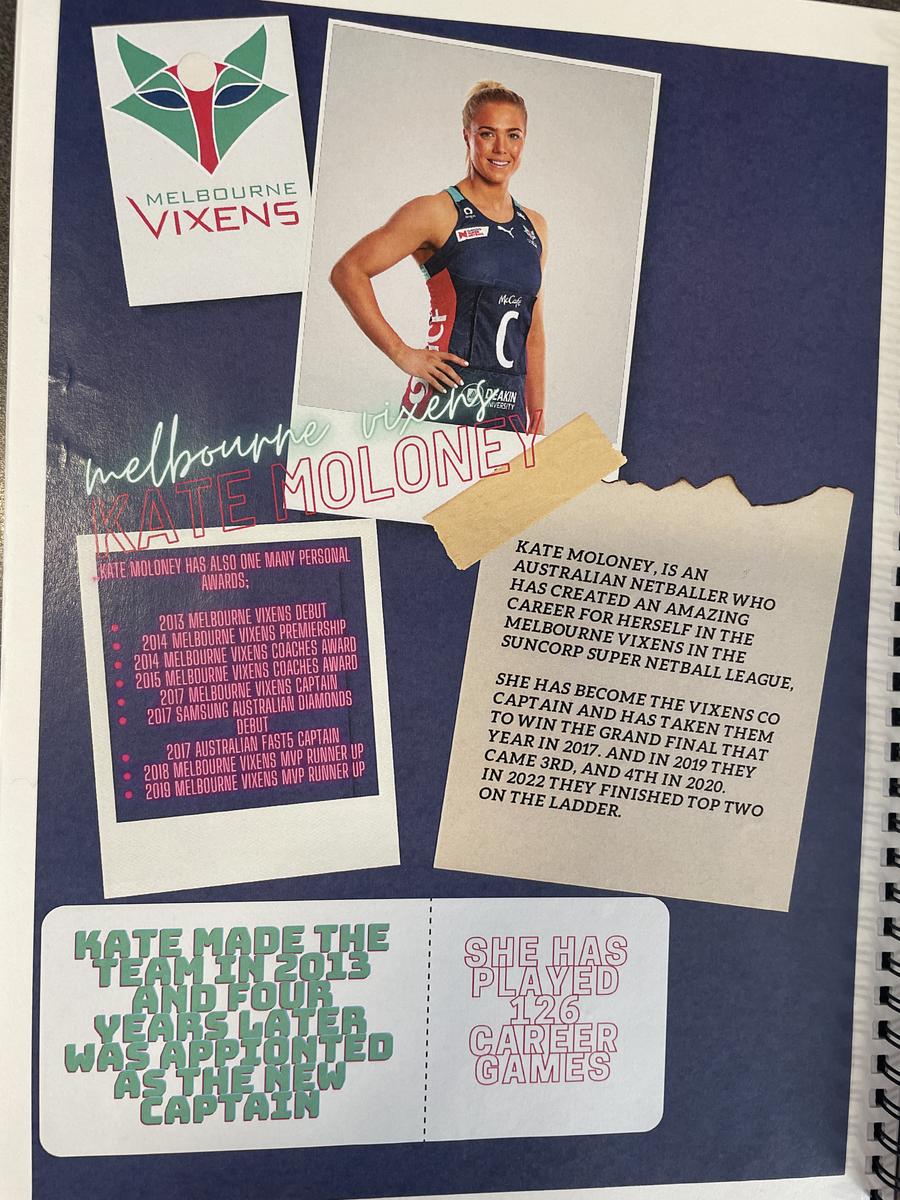 MELBOURNE
VIXENS
McCafé
C
DEAKIN
UNIVERSITY
melbourne vixens
KATE MOLONEY
KATE MOLONEY HAS ALSO ONE MANY PERSONAL
AWARDS;
• 2013 MELBOURNE VIXENS DEBUT
• 2014 MELBOURNE VIXENS PREMIERSHIP
• 2014 MELBOURNE VIXENS COACHES AWARD
• 2015 MELBOURNE VIXENS COACHES AWARD
• 2017 MELBOURNE VIXENS CAPTAIN
• 2017 SAMSUNG AUSTRALIAN DIAMONDS
DEBUT
• 2017 AUSTRALIAN FAST5 CAPTAIN
• 2018 MELBOURNE VIXENS MVP RUNNER UP
• 2019 MELBOURNE VIXENS MVP RUNNER UP
KATE MOLONEY, IS AN
AUSTRALIAN NETBALLER WHO
HAS CREATED AN AMAZING
CAREER FOR HERSELF IN THE
MELBOURNE VIXENS IN THE
SUNCORP SUPER NETBALL LEAGUE,
SHE HAS BECOME THE VIXENS CO
CAPTAIN AND HAS TAKEN THEM
TO WIN THE GRAND FINAL THAT
YEAR IN 2017. AND IN 2019 THEY
CAME 3RD, AND 4TH IN 2020.
IN 2022 THEY FINISHED TOP TWO
ON THE LADDER.
KATE MADE THE
TEAM IN 2013
AND FOUR
YEARS LATER
WAS APPIONTED
AS THE NEW
CAPTAIN
SHE HAS
PLAYED
126
CAREER
GAMES